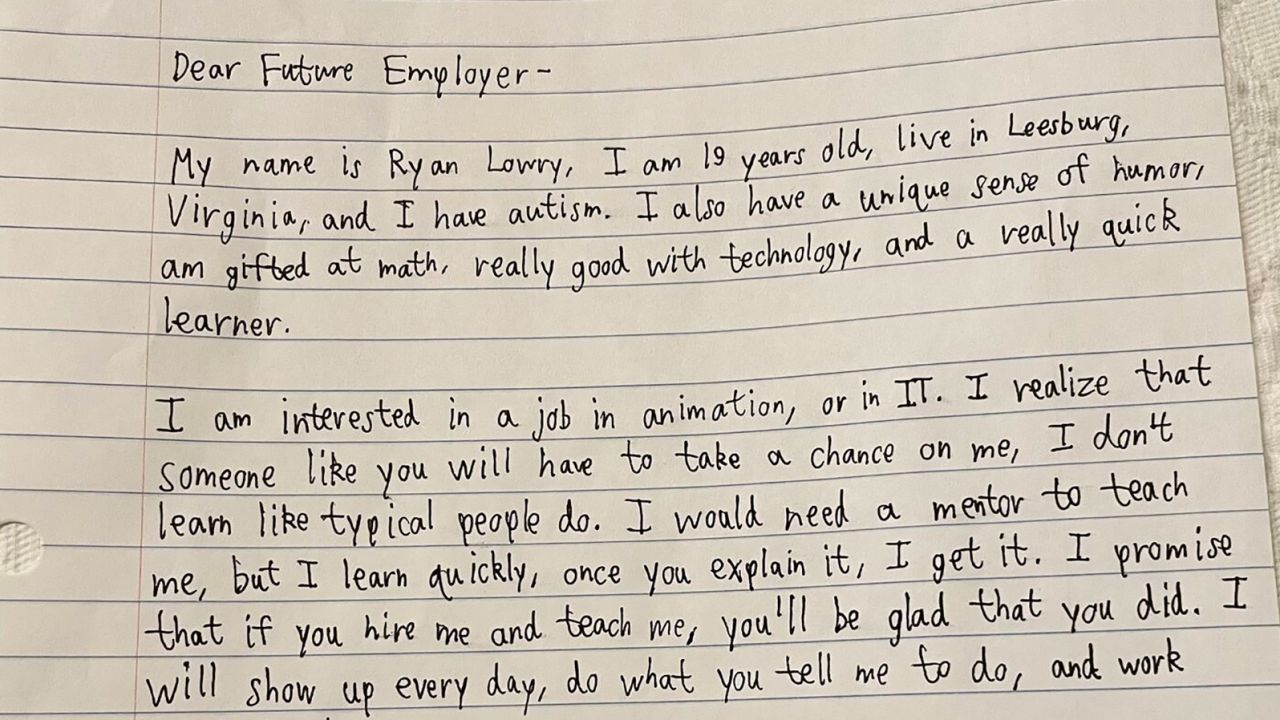 Dear Future Employer-
My name is Ryan Lowry, I am 19 years old, live in Leesburg,
Virginia, and I have autism. I also have a unique sense of humor,
am gifted at math, really good with technology, and a really quick
learner.
I am interested in a job in animation, or in IT. I realize that
someone like you will have to take a chance on me, I don't
learn like typical people do. I would need a mentor to teach
me, but I learn quickly, once you explain it, I get it. I promise
that if you hire me and teach me, you'll be glad that you did. I
will show up every day, do what you tell me to do, and work